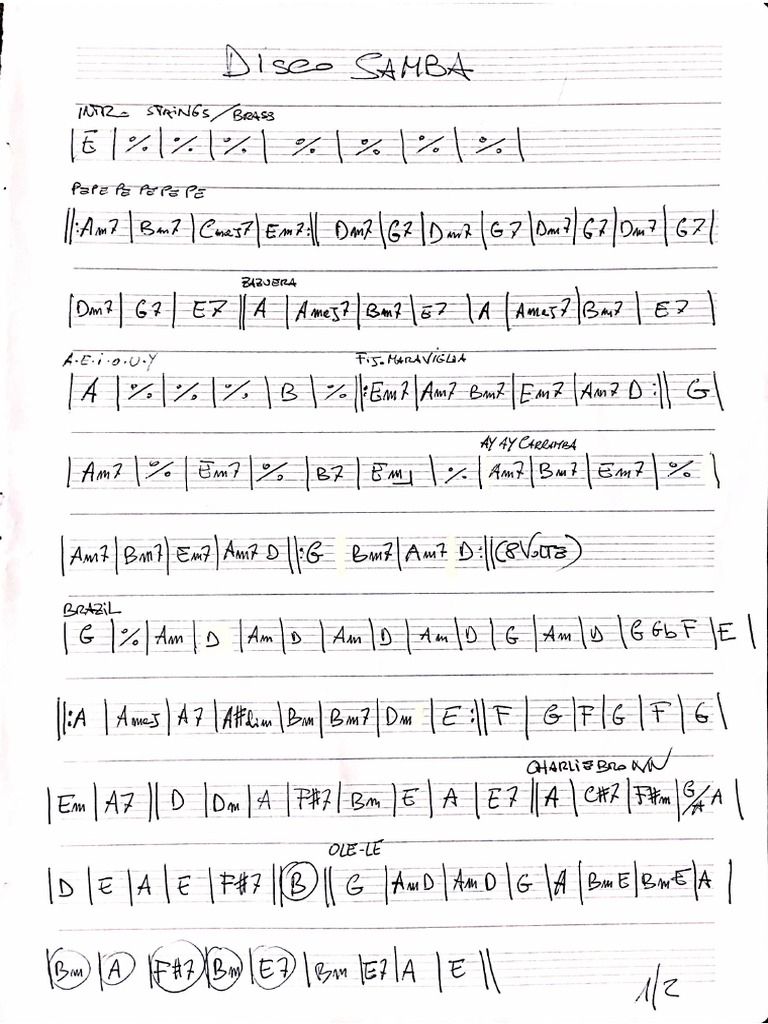 Disco SAMBA
INTRO STRINGS/BRASS
| E | % | % | % | % | % | % | % |
PEPE PE PE PE PE
||: Am7 | Bm7 | Cmaj7 | Em7 :|| Dm7 | G7 | Dm7 | G7 | Dm7 | G7 | Dm7 | G7 |
ZAZUERA
| Dm7 | G7 | E7 || A | Amaj7 | Bm7 | E7 | A | Amaj7 | Bm7 | E7 |
A.E.i.o.U.Y FIJ. MARAVIGLIA
| A | % | % | % | B | % ||: Em7 | Am7 Bm7 | Em7 | Am7 D :|| G |
AY AY CARRAMBA
| Am7 | % | Em7 | % | B7 | Em | % | Am7 | Bm7 | Em7 | % |
| Am7 | Bm7 | Em7 | Am7 D ||: G Bm7 | Am7 D :|| (8 VOLTE)
BRAZIL
| G | % | Am | D | Am | D | Am | D | Am | D | G | Am | D | G Gb F | E |
||: A | Amaj | A7 | A#dim | Bm | Bm7 | Dm | E :|| F | G | F | G | F | G |
CHARLIE BROWN
| Em | A7 || D | Dm | A | F#7 | Bm | E | A | E7 || A | C#7 | F#m | G/A A |
OLE-LE
| D | E | A | E | F#7 || B || G | Am D | Am D | G | A | Bm E | Bm E | A |
| Bm | A | F#7 | Bm | E7 | Bm | E7 | A | E ||
1/2